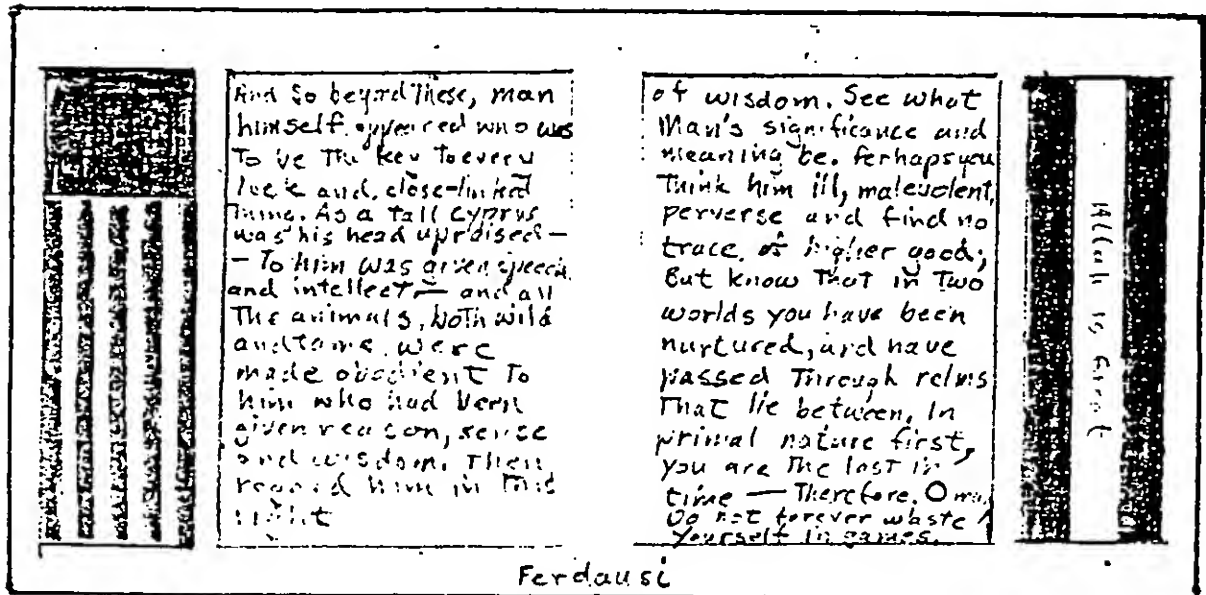 And So beyond These, man
himself appeared who was
To be The key To every
lock and close-linked
Thing. As a Tall Cyprus
was his head upraised —
— To him was given speech
and intellect — and all
The animals, both wild
and tame, were
made obedient To
him who had been
given reason, sense
and wisdom. Then
regard him in This
light
of wisdom. See what
Man's significance and
meaning be. Perhaps you
Think him ill, malevolent,
perverse and find no
trace of higher good;
But know That in Two
worlds you have been
nurtured, and have
passed Through relms
That lie between. In
primal nature first,
you are The last in
time — Therefore, O man
Do not forever waste
Yourself in games.
Allah is Great
Ferdausi